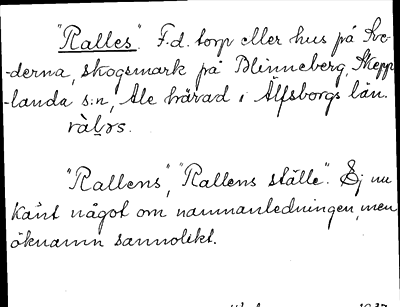 "Ralles". F.d. torp eller hus på Sve-
-derna, skogsmark på Blinneberg, Skepp-
-landa s:n, Ale härad i Älfsborgs län.
"Rallens", "Rallens ställe". Ej nu
känt något om namnanledningen, men
öknamn sannolikt.